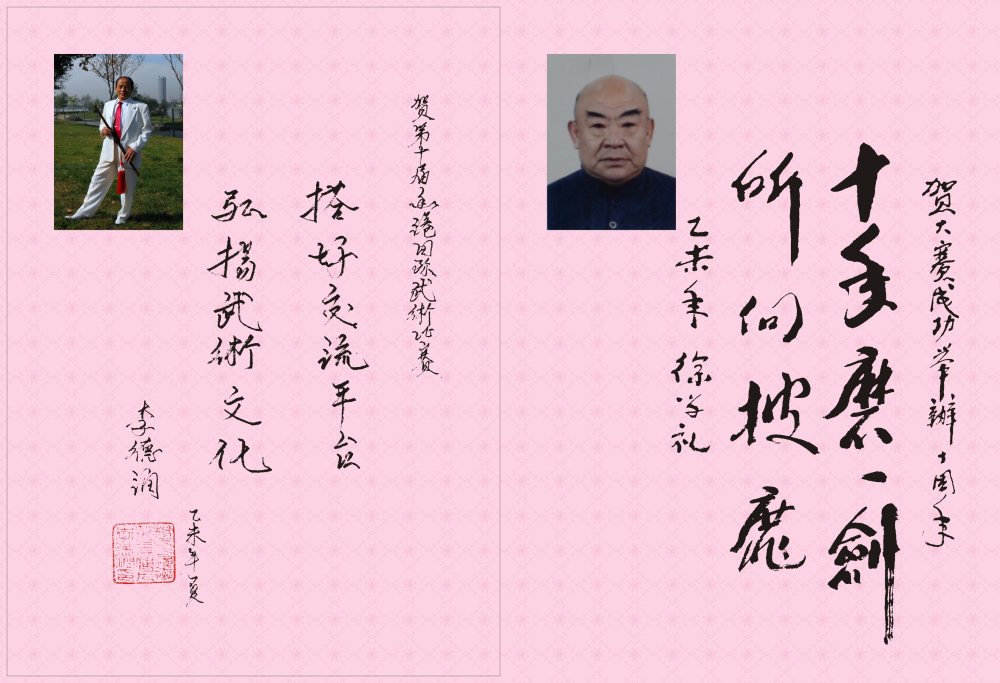 贺大赛成功举辦十周年
十年磨一劍
所向披靡
乙未年 徐学礼
贺第十届香港国际武術比赛
搭好交流平台
弘揚武術文化
乙未年夏
李德润